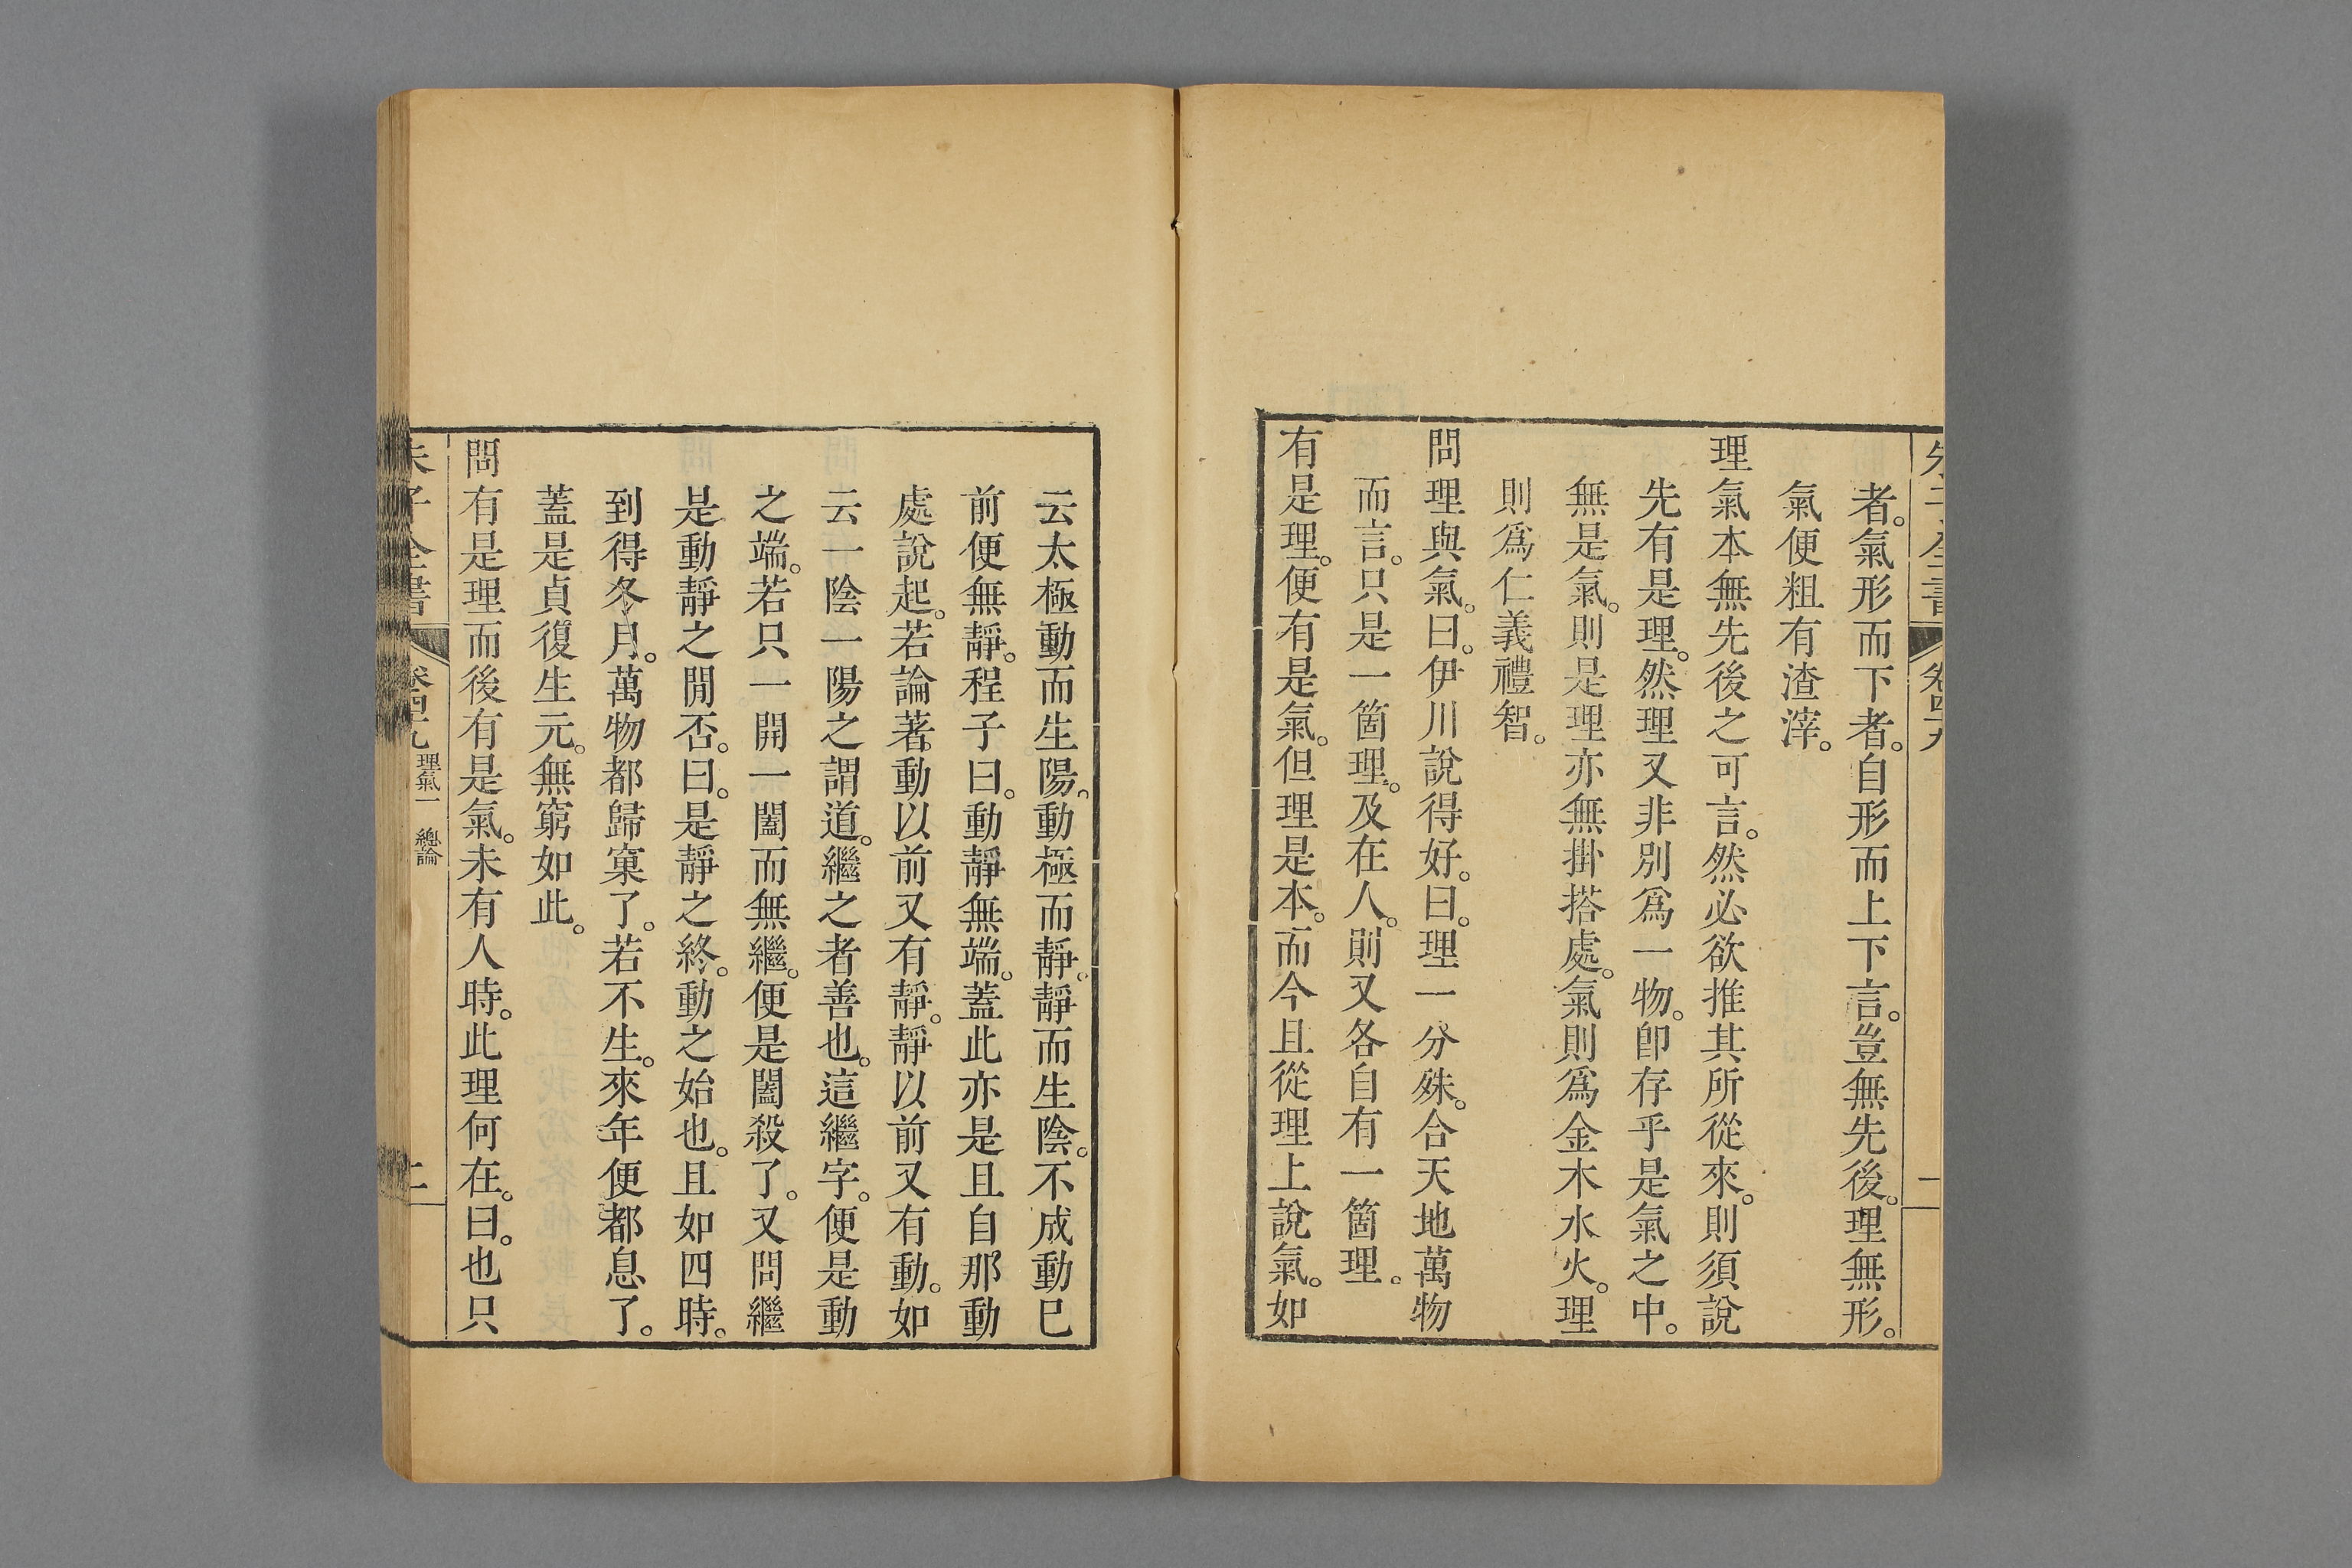 朱子全書 卷四十九 一
者。氣形而下者。自形而上下言。豈無先後。理無形。
氣便粗有渣滓。
理氣本無先後之可言。然必欲推其所從來。則須說
先有是理。然理又非別爲一物。卽存乎是氣之中。
無是氣。則是理亦無掛搭處。氣則爲金木水火。理
則爲仁義禮智。
問理與氣。曰。伊川說得好。曰。理一分殊。合天地萬物
而言。只是一箇理。及在人。則又各自有一箇理。
有是理。便有是氣。但理是本。而今且從理上說氣。如
云太極動而生陽。動極而靜。靜而生陰。不成動已
前便無靜。程子曰。動靜無端。蓋此亦是且自那動
處說起。若論著動以前又有靜。靜以前又有動。如
云一陰一陽之謂道。繼之者善也。這繼字。便是動
之端。若只一開一闔而無繼。便是闔殺了。又問繼
是動靜之閒否。曰。是靜之終。動之始也。且如四時。
到得冬月。萬物都歸窠了。若不生。來年便都息了。
蓋是貞復生元。無窮如此。
問有是理而後有是氣。未有人時。此理何在。曰。也只
朱子全書 卷四十九 理氣一 總論 二